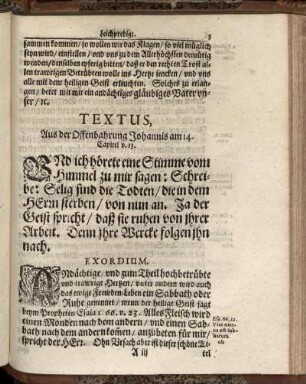 Leichpredigt. 3
sammen kommen/ so wollen wir das Klagen/ so viel müglich
seyn wird/ einstellen/ vnd vns zu dem Allerhöchsten demütig
wenden/ denselben eyferig bitten/ daß er den rechten Trost allen
trawrigen Betrübten wolle ins Hertze sencken/ vnd vns
alle mit dem heiligen Geist erleuchten. Solches zu erlangen/
betet mit mir ein andächtiges gläubiges Vater vnser/
ꝛc.
TEXTUS,
Aus der Offenbahrung Johannis am 14.
Capitel v. 13.
VNd ich hörete eine Stimme vom
Himmel zu mir sagen: Schreibe:
Selig sind die Todten/ die in dem
HErrn sterben/ von nun an. Ja der
Geist spricht/ daß sie ruhen von jhrer
Arbeit. Denn jhre Wercke folgen jhn
nach.
EXORDIUM.
ANdächtige/ vnd zum Theil hochbetrübte
vnd trawrige Hertzen/ vnter andern wird auch
das ewige Frewden Leben ein Sabbath oder
Ruhe genennet/ wenn der heilige Geist sagt
beym Propheten Esaia c. 66. v. 23. Alles Fleisch wird
einen Monden nach dem andern/ vnd einen Sabbath
nach dem andern kommen/ anzubeten für mir/
spricht der HErr. Ohn Vrsach aber ist dieser schöne Titel
Esa. 66. 23.
A iij